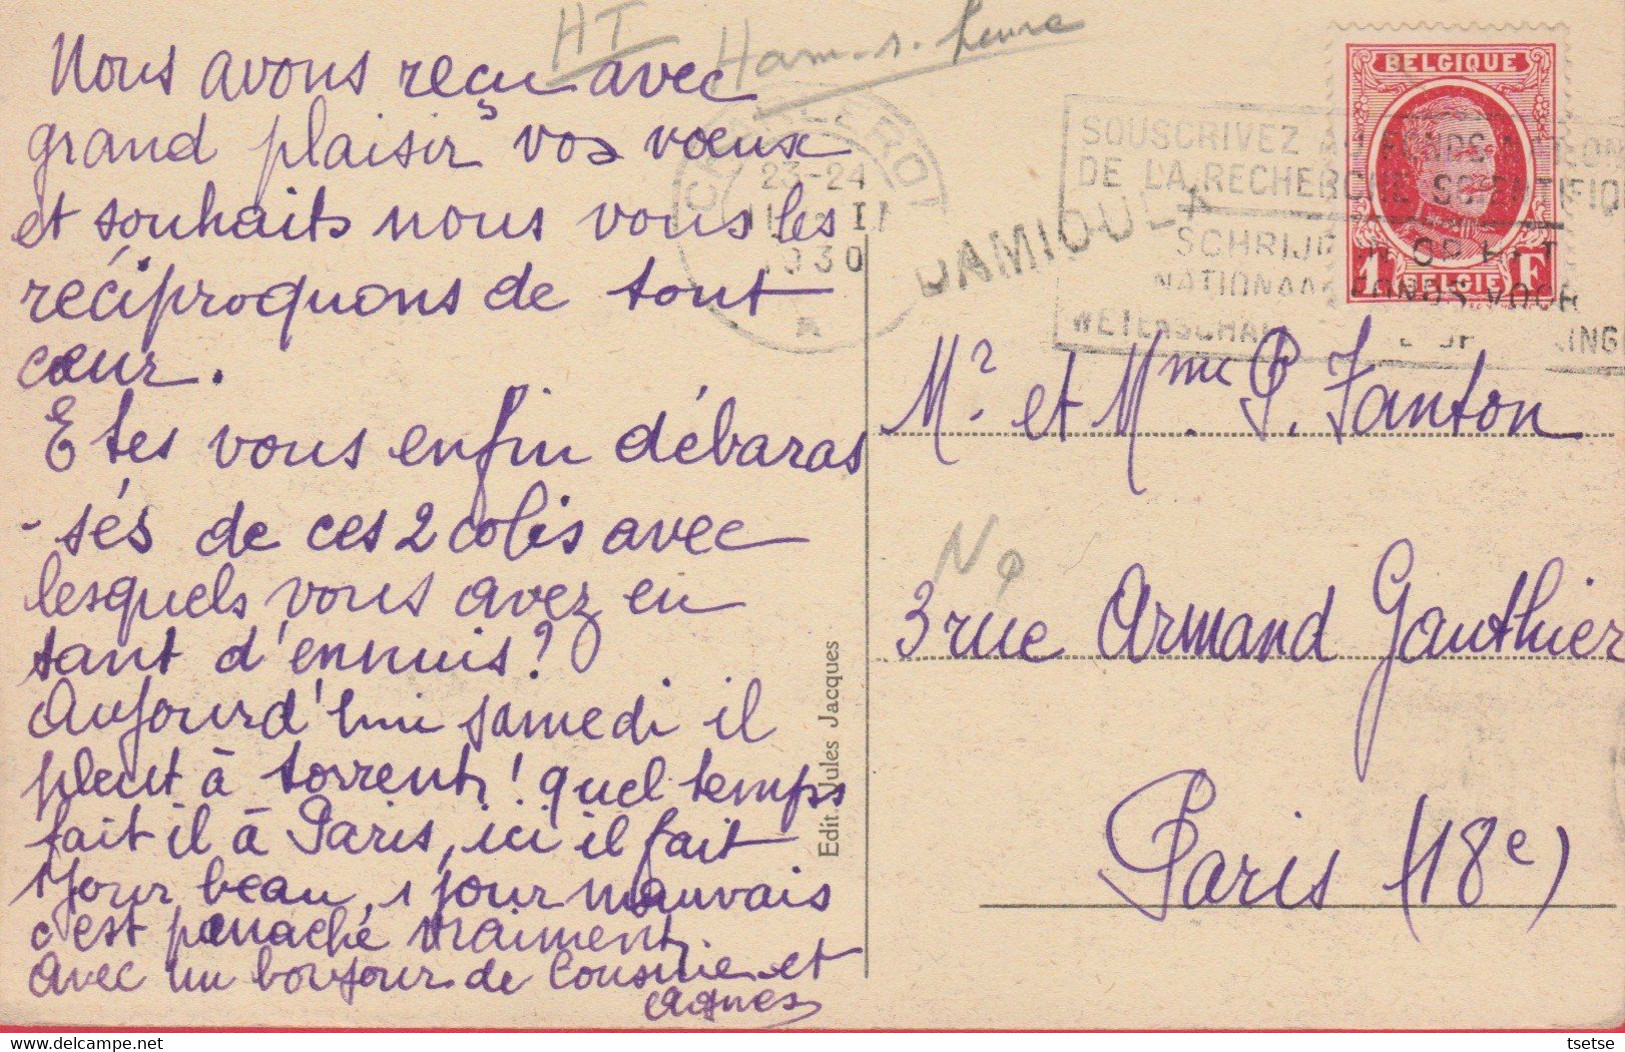 HT Ham-s-heure
Nous avons reçu avec
grand plaisir vos vœux
et souhaits nous vous les
réciproquons de tout
cœur.
Etes vous enfin débaras
-sés de ces 2 colis avec
lesquels vous avez eu
tant d'ennuis?
Aujourd'hui samedi il
pleut à torrent! quel temps
fait il à Paris, ici il fait
1 jour beau, 1 jour mauvais
c'est panaché vraiment,
Avec un bonjour de Cousine et
Agnes
Edit. Jules Jacques
23-24
1930
A
DAMIOULX
BELGIQUE
1 F
BELGIE
SOUSCRIVEZ AU FONDS
DE LA RECHERCHE SCIENTIFIQ
NATIONAA FONDS VOOR
Mr. et Mme. P. Fanton
No
3 rue Armand Gauthier
Paris (18e)
tsetse